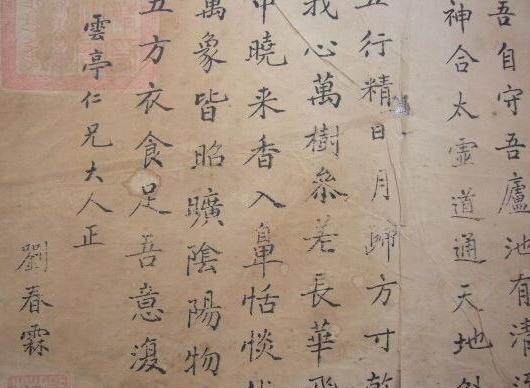 吾自守吾廬池有清
神合太虛道通天地
五行精日月歸方寸乾
我心萬樹參差長華飛
中曉来香入鼻恬惔
萬象皆昭曠陰陽物
五方衣食足善意復
雲亭仁兄大人正
劉春霖